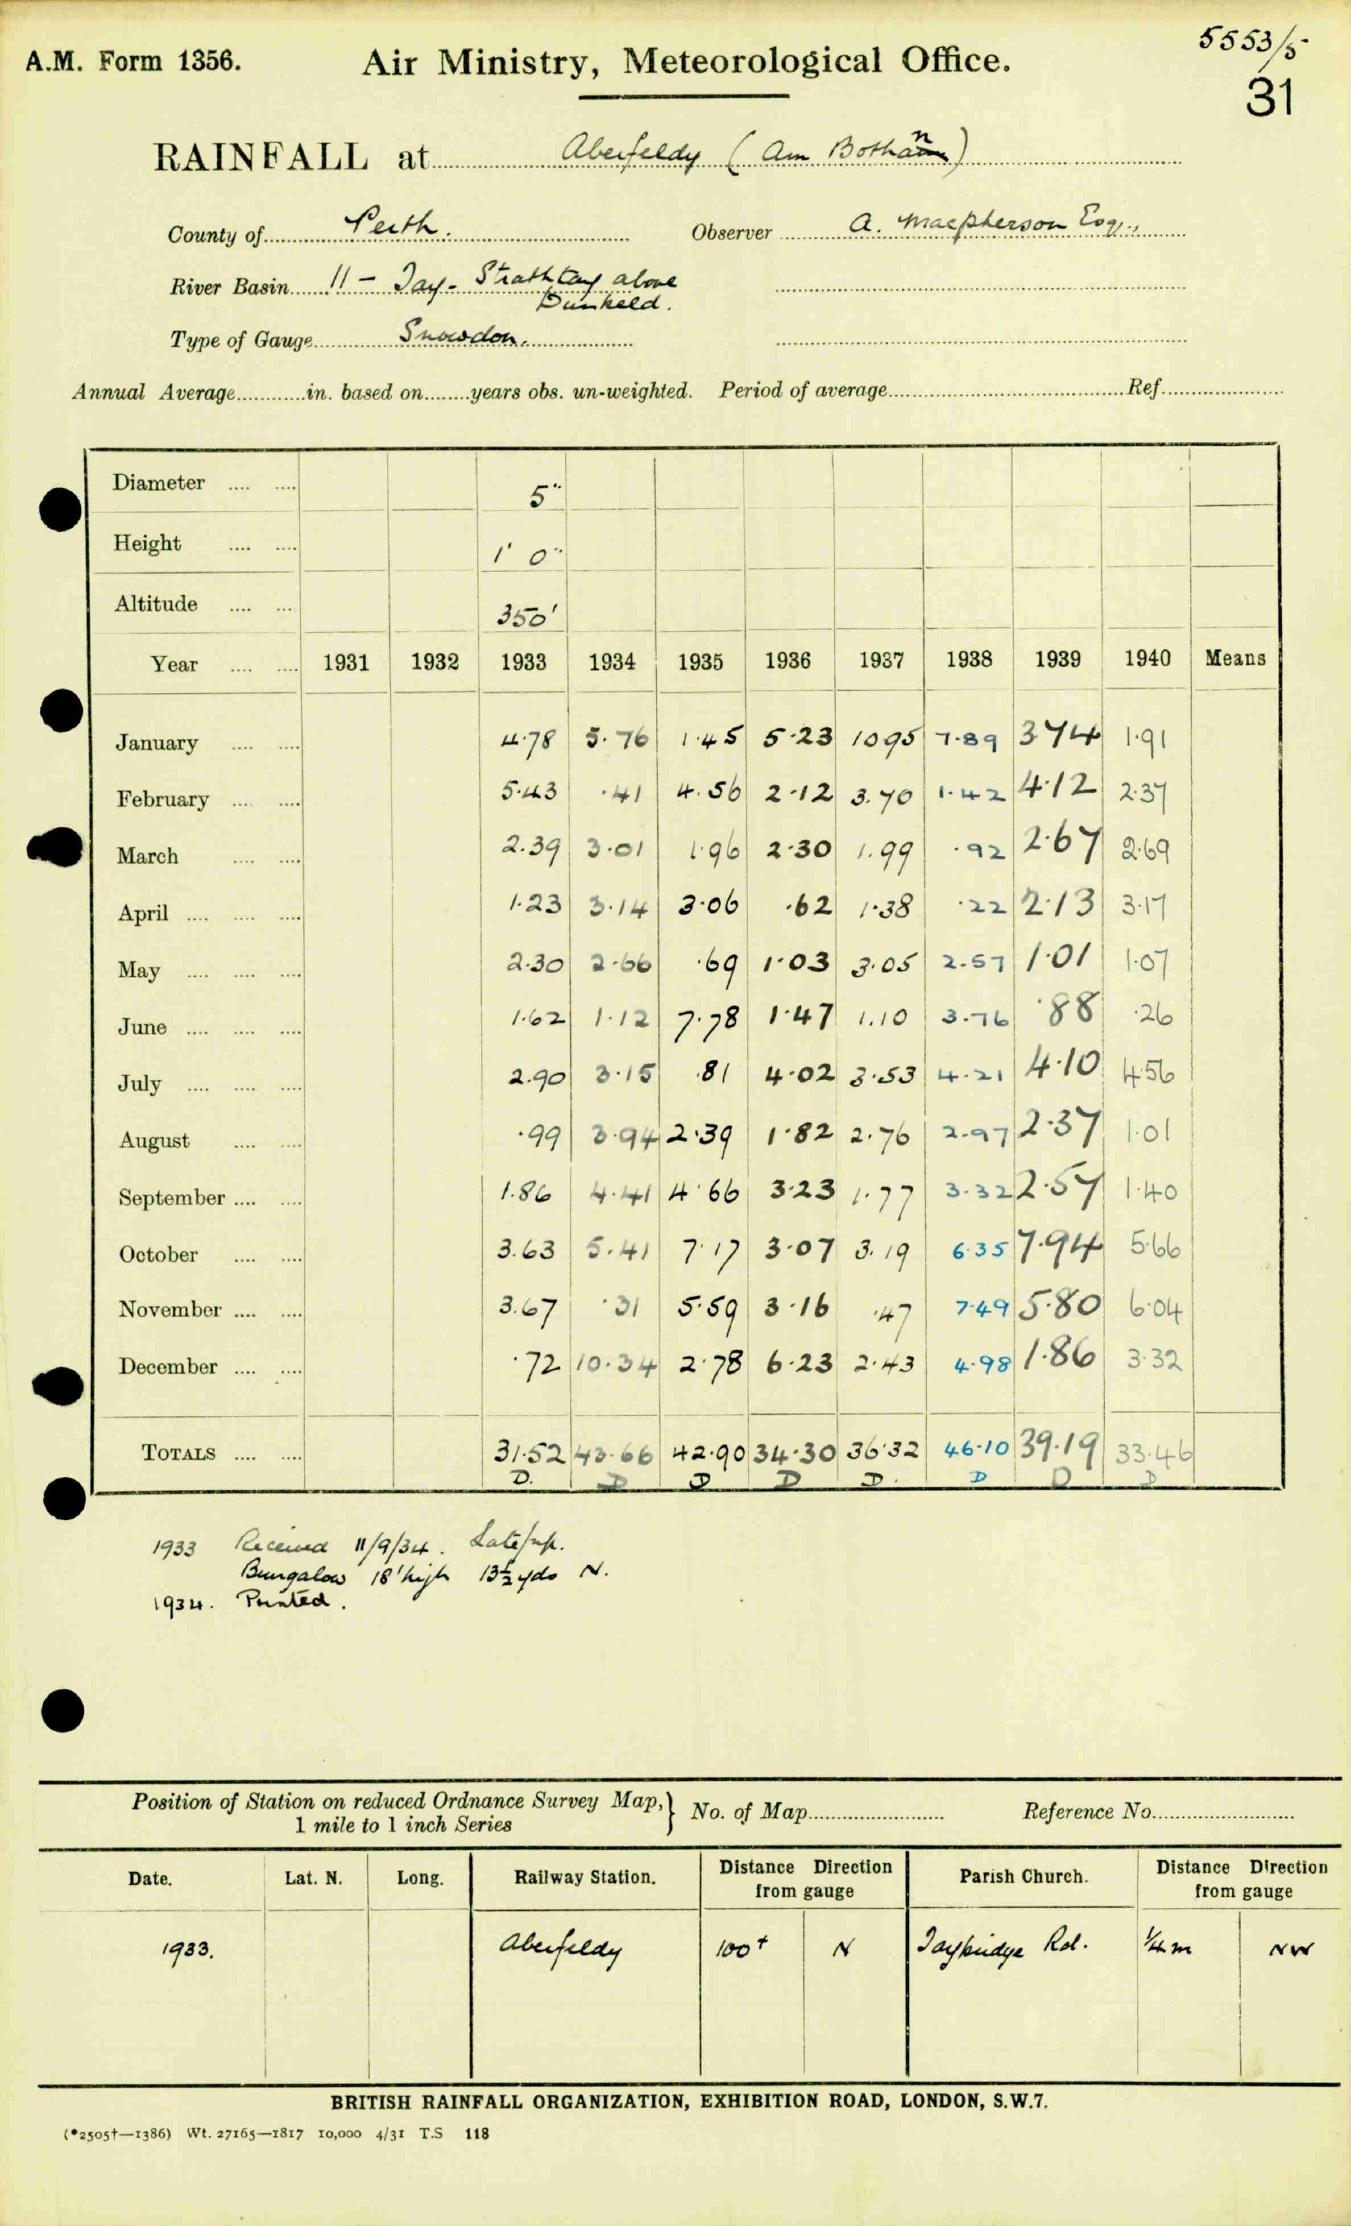 5553/5
A.M. Form 1356.
Air Ministry, Meteorological Office.
31
RAINFALL at Aberfeldy (Am Bothan)
County of Perth. Observer A. Macpherson Esq.,
River Basin 11 - Tay - Strathtay above
Dunkeld.
Type of Gauge Snowdon.
Annual Average in. based on years obs. un-weighted. Period of average Ref.
Diameter 5"
Height 1' 0"
Altitude 350'
Year 1931 1932 1933 1934 1935 1936 1937 1938 1939 1940 Means
January 4.78 5.76 1.45 5.23 10.95 7.89 3.74 1.91
February 5.43 .41 4.56 2.12 3.70 1.42 4.12 2.37
March 2.39 3.01 1.96 2.30 1.99 .92 2.67 2.69
April 1.23 3.14 3.06 .62 1.38 .22 2.13 3.17
May 2.30 2.66 .69 1.03 3.05 2.57 1.01 1.07
June 1.62 1.12 7.78 1.47 1.10 3.76 .88 .26
July 2.90 3.15 .81 4.02 3.53 4.21 4.10 4.56
August .99 3.94 2.39 1.82 2.76 2.97 2.37 1.01
September 1.86 4.41 4.66 3.23 1.77 3.32 2.57 1.40
October 3.63 5.41 7.17 3.07 3.19 6.35 7.94 5.66
November 3.67 .31 5.59 3.16 .47 7.49 5.80 6.04
December .72 10.34 2.78 6.23 2.43 4.98 1.86 3.32
TOTALS 31.52 43.66 42.90 34.30 36.32 46.10 39.19 33.46
D. D D D D. D D D
1933 Received 11/9/34.
Bungalow 18' high 13½ yds N.
1934. Printed.
Position of Station on reduced Ordnance Survey Map,} No. of Map Reference No.
1 mile to 1 inch Series
Date. Lat. N. Long. Railway Station. Distance Direction from gauge Parish Church. Distance Direction from gauge
1933. Aberfeldy 100+ N Taybridge Rd. ¼ m NW
BRITISH RAINFALL ORGANIZATION, EXHIBITION ROAD, LONDON, S.W.7.
(*2505†—1386) Wt. 27165—1817 10,000 4/31 T.S 118